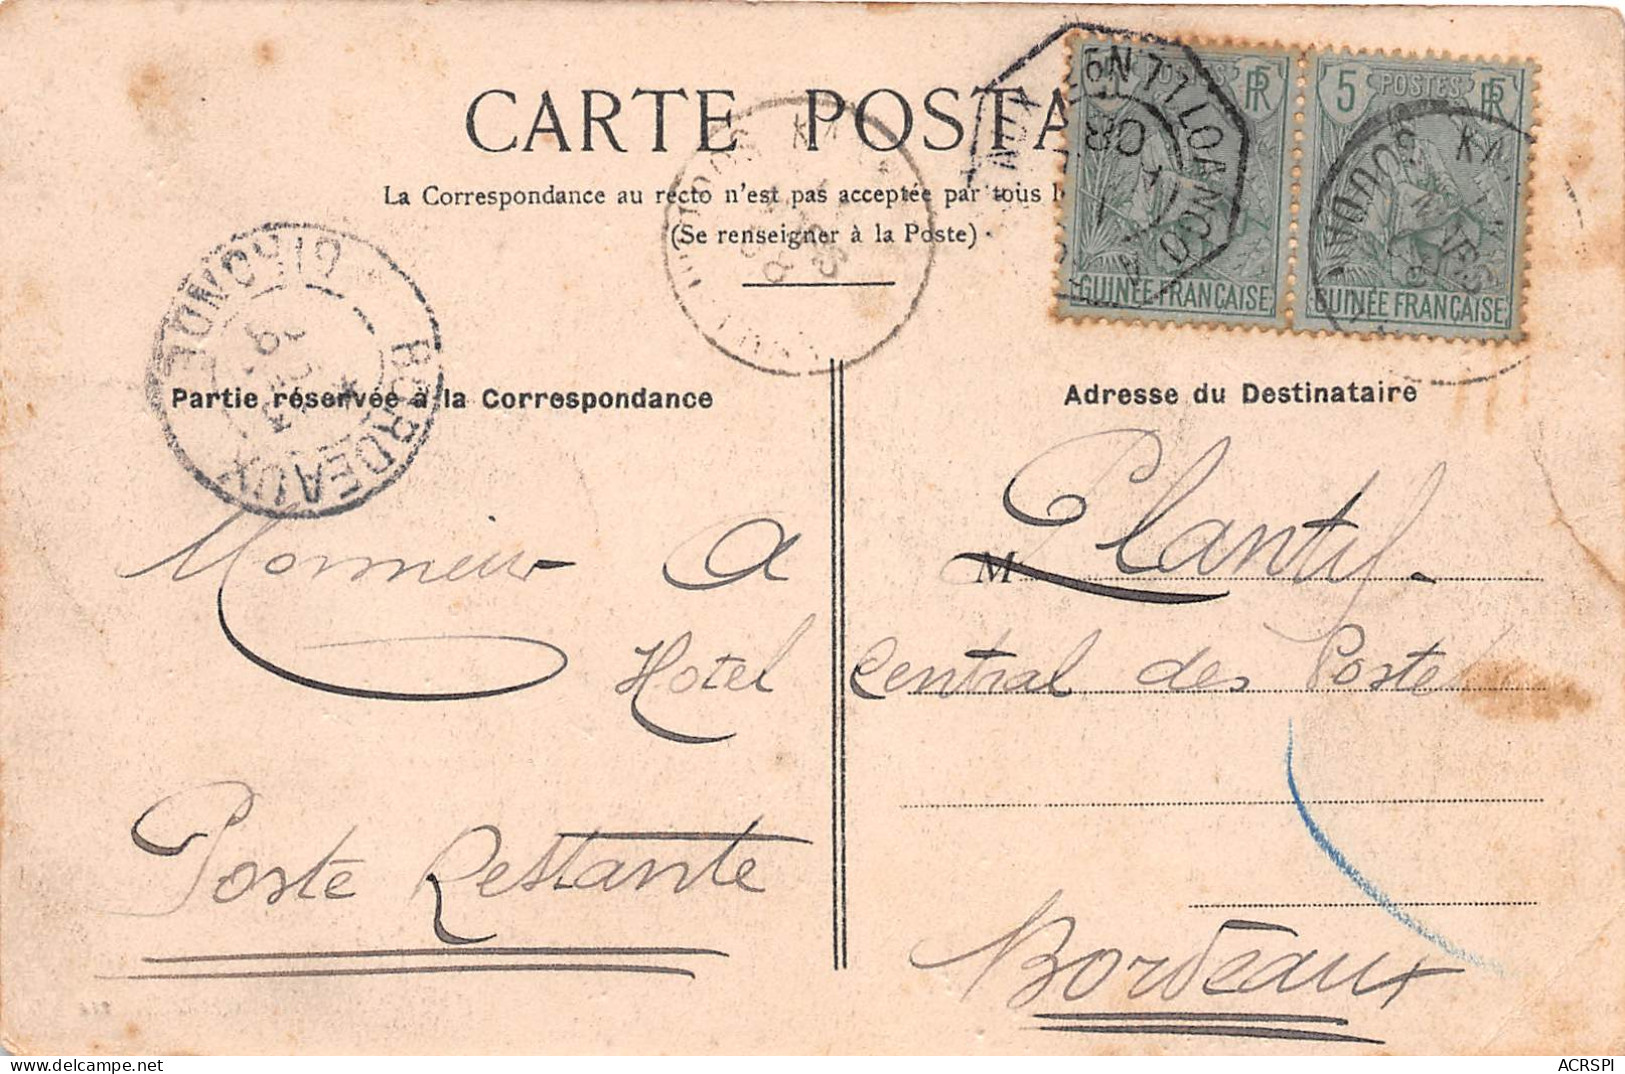 CARTE POSTA
La Correspondance au recto n'est pas acceptée par tous l
(Se renseigner à la Poste)
5 POSTES 5
RF
GUINÉE FRANÇAISE
5 POSTES 5
RF
GUINÉE FRANÇAISE
LOANGO
BORDEAUX
GIRONDE
Partie réservée à la Correspondance
Adresse du Destinataire
Monsieur A
M Plantif.
Hotel Central des Postes
Poste Restante
Bordeaux
ACRSPI